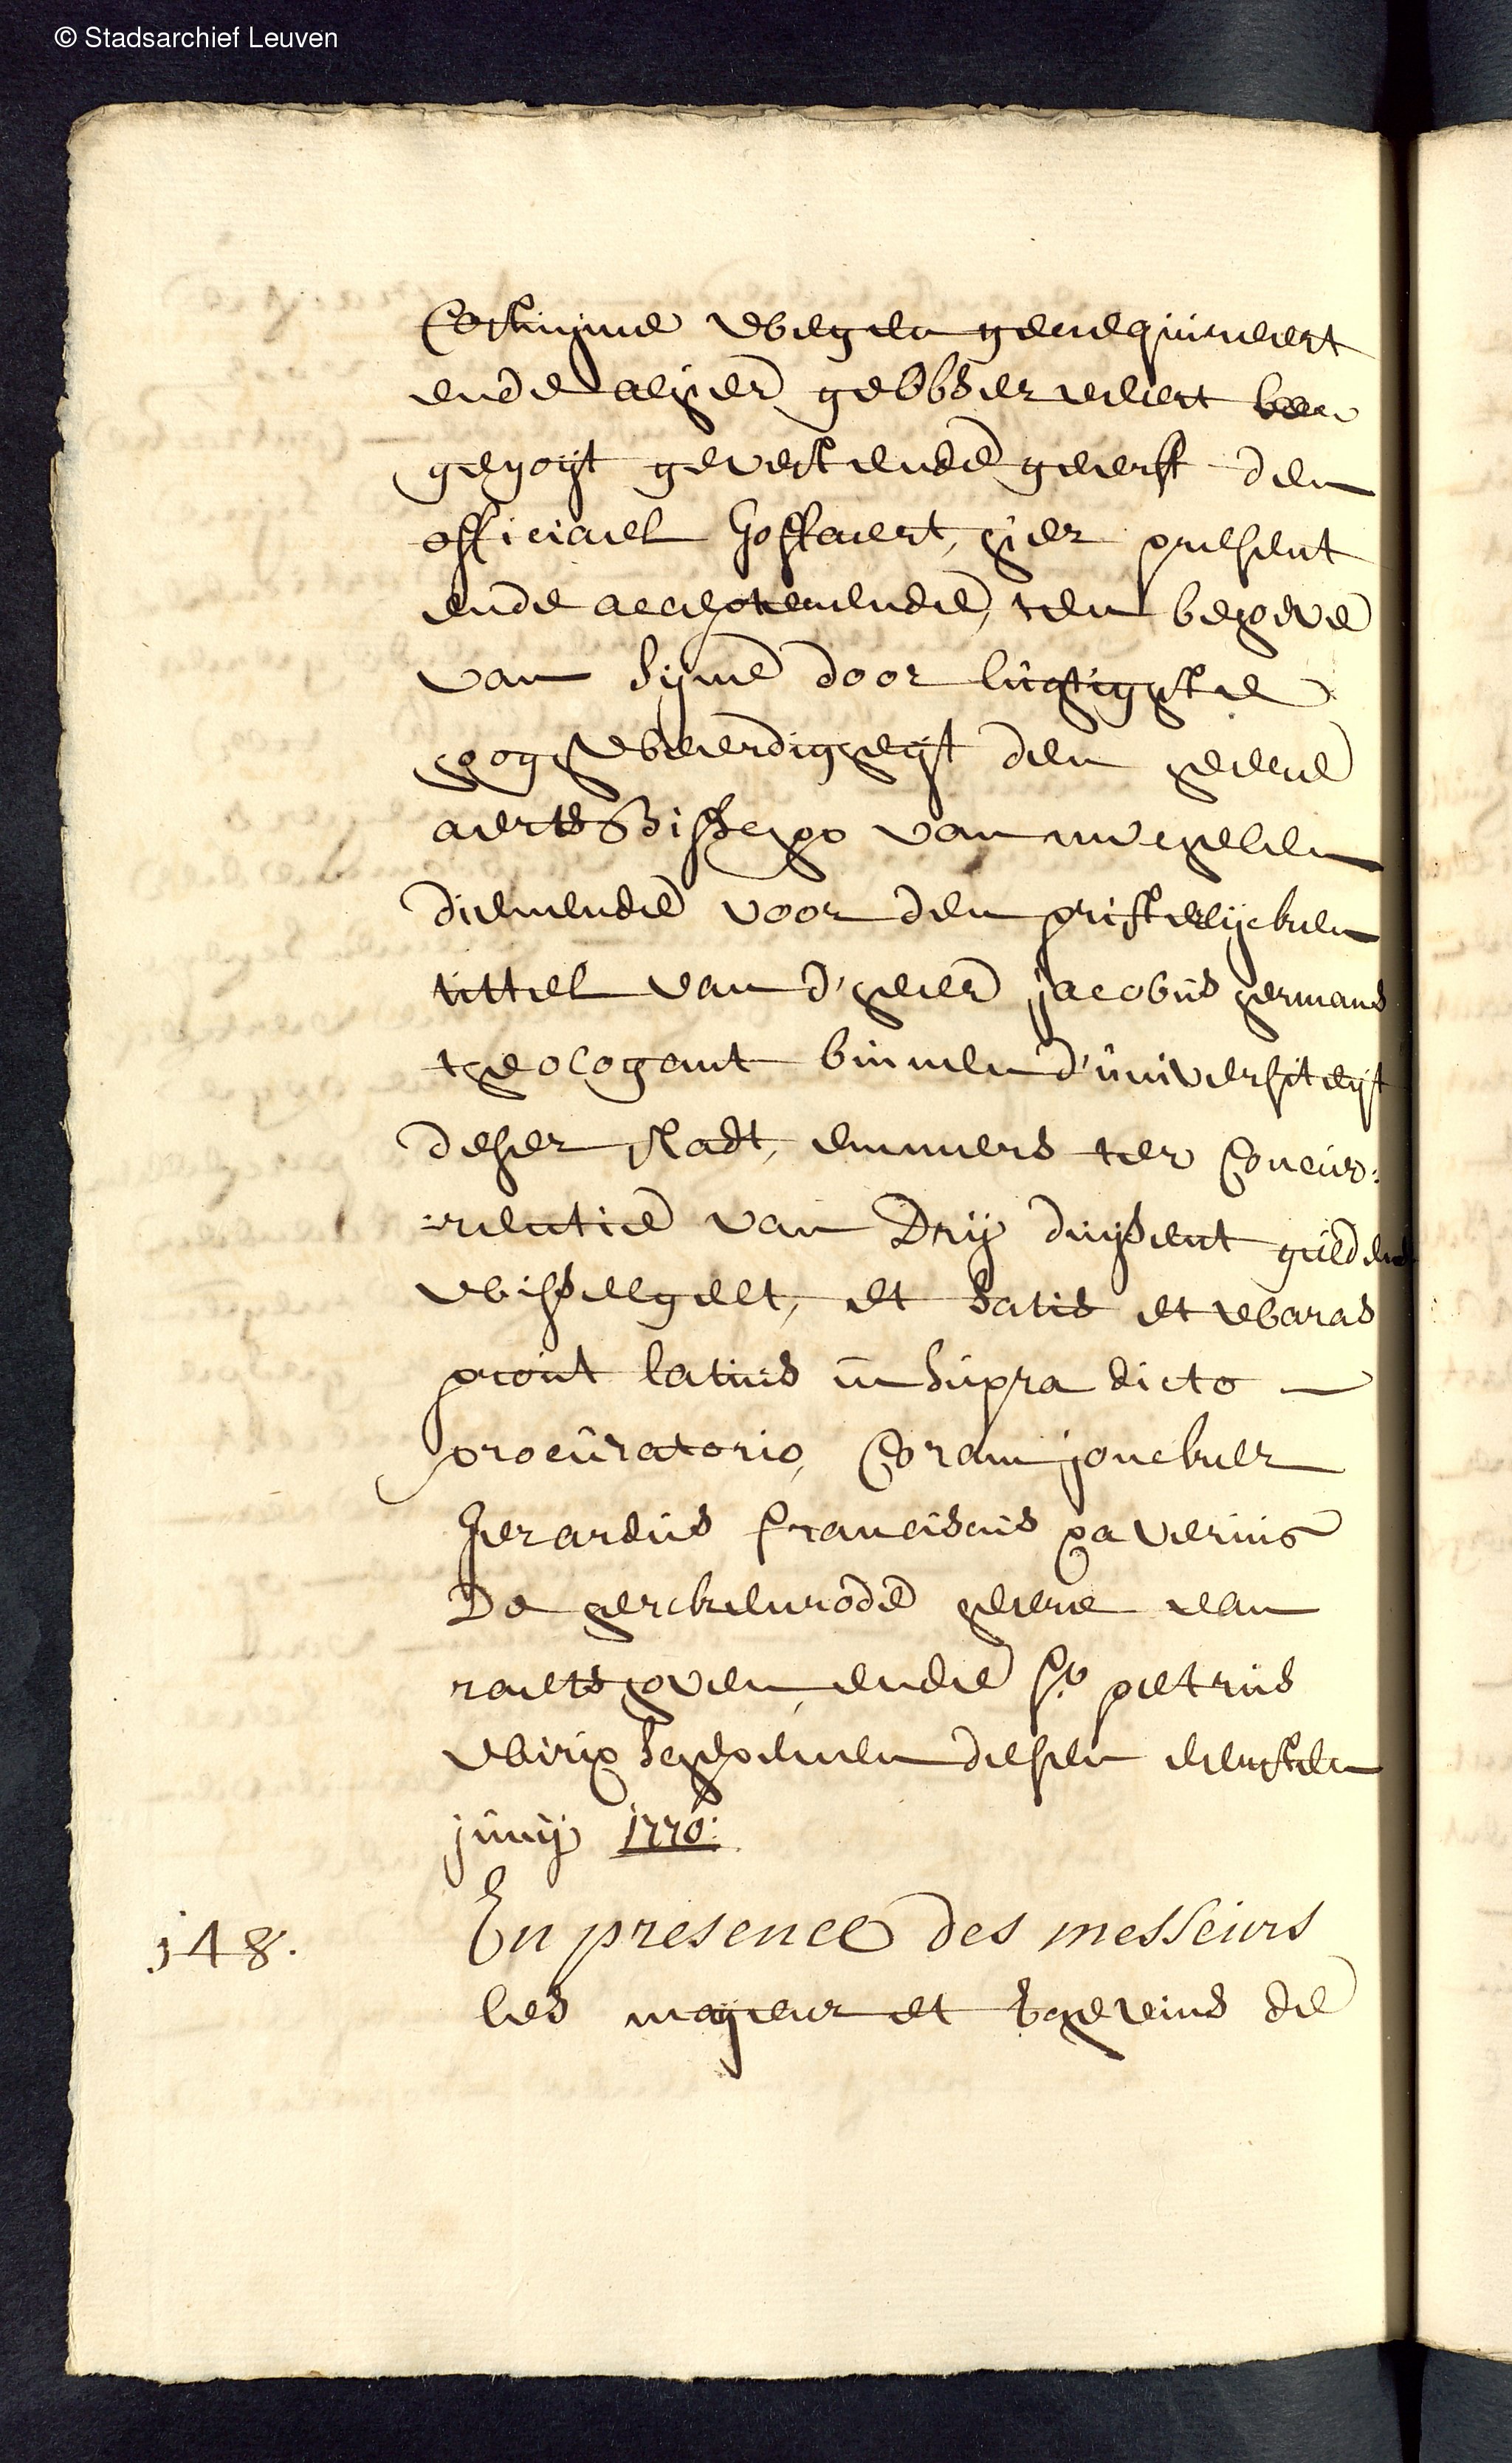 © Stadsarchief Leuven
Costuyme wegen gerequireert
ende alhier geobserveert ben
gegoyt gevest ende geerft den
officiael Goffaert, hier present
ende accepterende, ten behoeve
van syne door lugtigste
hoghweerdigheyt den heere
aertsbisschop van mechelen
dienende voor den pristerlijcken
tittel van d'heer jacobus hermans
theologant binnen d'universiteyt
deser stadt, emmers ter concur:
:rentie van Drij duysent gulden
wisselgelt, et satis et waras
prout latius in supra dicto
procuratorio, Coram joncker
gerardus franciscus xaverius
De herckenrode heere van
roets hoven, ende sr petrus
wirix schepenen desen eersten
junij 1770:
148.
En presence des messeiurs
les mayeur et Echevins de